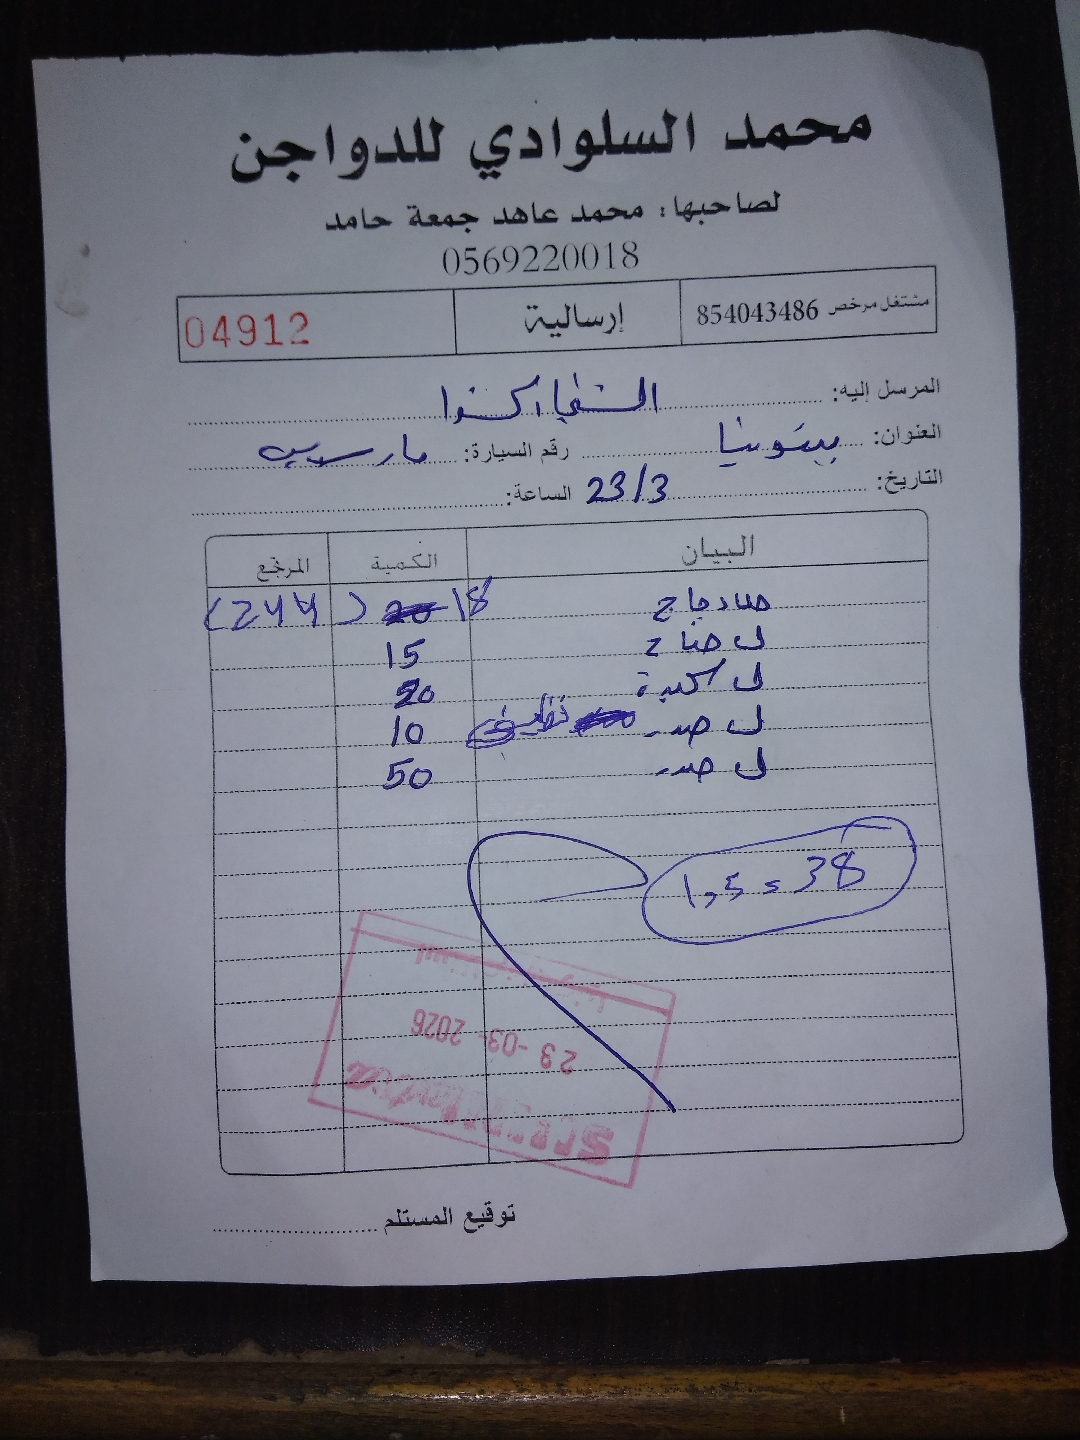 محمد السلوادي للدواجن
لصاحبها: محمد عاهد جمعة حامد
0569220018
مشتغل مرخص 854043486 إرسالية 04912
المرسل إليه:
العنوان: بيتونيا رقم السيارة:
التاريخ: 23/3 الساعة:
البيان الكمية المرتجع
دجاج 18 (244)
ك جناح 15
ك كبدة 20
ك صدر 10
ك صدر 50
1,5 = 38
23 -03- 2026
توقيع المستلم